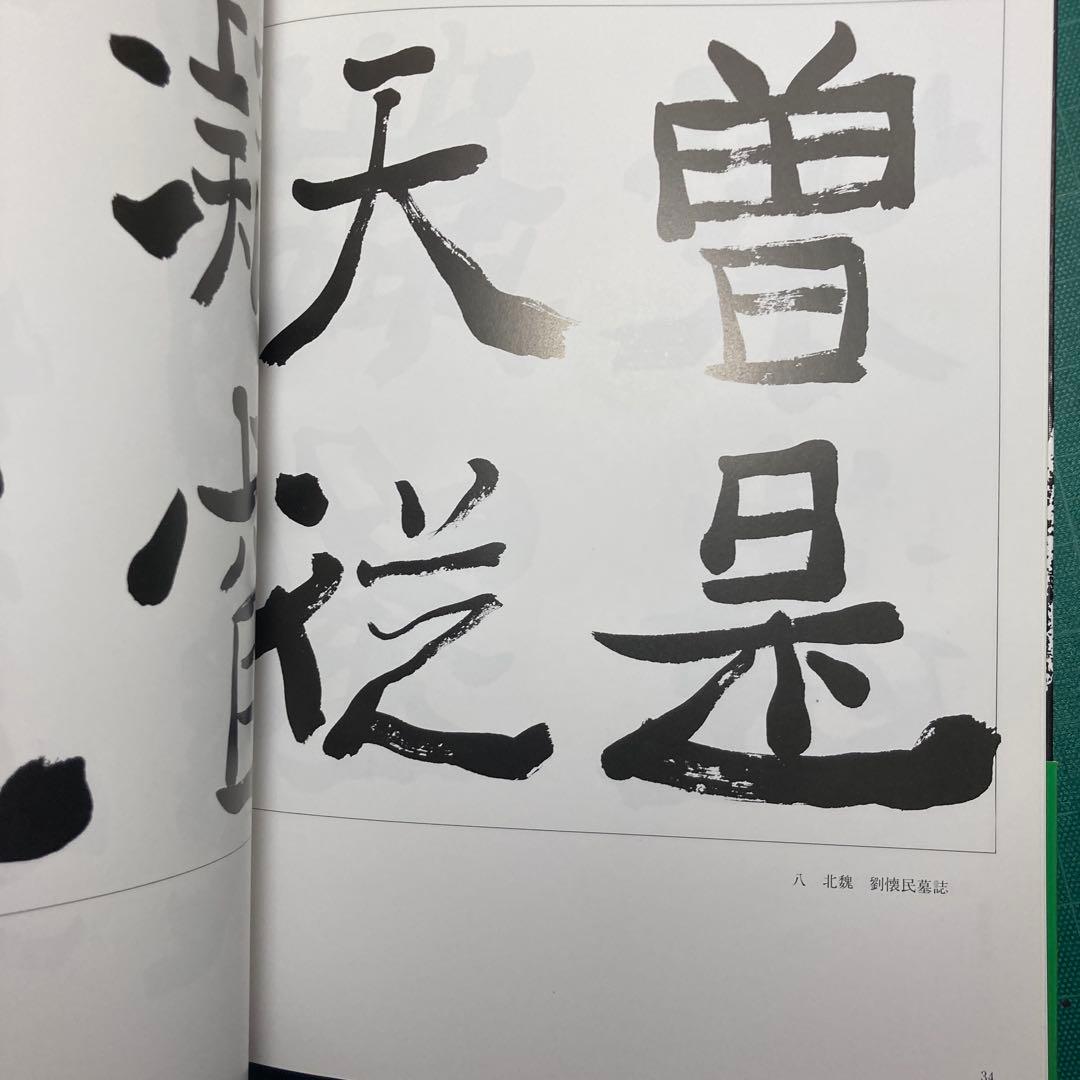 曽是
天従
八 北魏 劉懐民墓誌
34